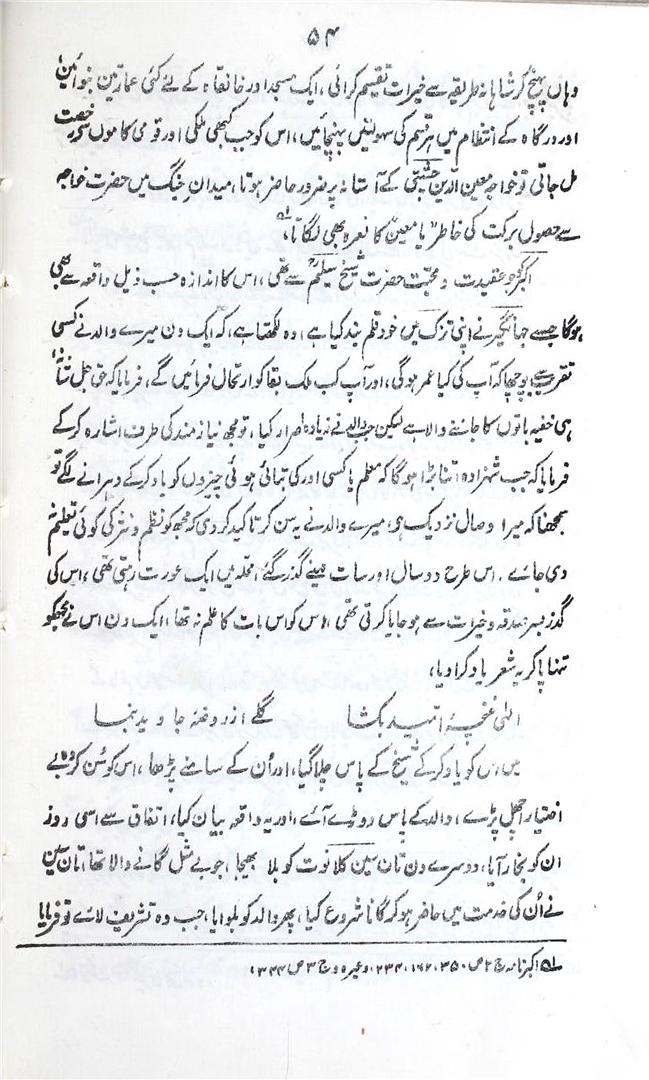 ۵۴
وہاں پہنچ کر شاہانہ طریقہ سے خیرات تقسیم کرائی، ایک مسجد اور خانقاہ کے لئے کئی عمارتیں بنوائیں
اور درگاہ کے انتظام میں ہر قسم کی سہولتیں پہنچائیں، اس کو جب کبھی ملکی اور قومی کاموں سے رخصت
مل جاتی تو خواجہ معین الدین چشتیؒ کے آستانہ پر ضرور حاضر ہوتا، میدان جنگ میں حضرت خواجہ
سے حصول برکت کی خاطر "یا معین" کا نعرہ بھی لگاتا،
اکبر کو جو عقیدت و محبت حضرت شیخ سلیمؒ سے تھی، اس کا اندازہ حسب ذیل واقعہ سے بھی
ہوگا جسے جہانگیر نے اپنی تزک میں خود قلمبند کیا ہے، وہ لکھتا ہے، کہ ایک دن میرے والد نے کسی
تقریب سے پوچھا کہ آپ کی کیا عمر ہوگی، اور آپ کب ملک بقا کو ارتحال فرمائیں گے، فرمایا کہ حق جل شانہٗ
ہی خفیہ باتوں کا جاننے والا ہے لیکن جب والد نے زیادہ اصرار کیا، تو مجھ نیازمند کی طرف اشارہ کر کے
فرمایا کہ جب شہزادہ اتنا بڑا ہوگا کہ معلم یا کسی اور کی بتائی ہوئی چیزوں کو یاد کر کے دہرانے لگے تو
سمجھنا کہ میرا وصال نزدیک ہے، میرے والد نے یہ سن کر تاکید کر دی کہ مجھ کو نظم و نثر کی کوئی تعلیم نہ
دی جائے۔ اس طرح دو سال اور سات مہینے گذر گئے، محلہ میں ایک عورت رہتی تھی، اس کی
گذر بسر صدقہ و خیرات سے ہو جایا کرتی تھی، اس کو اس بات کا علم نہ تھا، ایک دن اس نے مجھکو
تنہا پا کر یہ شعر یاد کرا دیا،
الٰہی غنچۂ امید بکشا گلے از روضۂ جاوید بنما
میں اس کو یاد کر کے شیخ کے پاس چلا گیا، اور اُن کے سامنے پڑھا، اس کو سُن کر وہ بے
اختیار اچھل پڑے، والد کے پاس دوڑے آئے، اور یہ واقعہ بیان کیا، اتفاق سے اسی روز
ان کو بخار آیا، دوسرے دن تان سین کلانوت کو بلا بھیجا، جو بے مثل گانے والا تھا، تان سین
نے اُن کی خدمت میں حاضر ہو کر گانا شروع کیا، پھر والد کو بلوایا، جب وہ تشریف لائے تو فرمایا
لہ اکبرنامہ ج ۲ ص ۳۵۰، ۱۶۲، ۲۳۴، وغیرہ و ج ۳ ص ۳۴۴